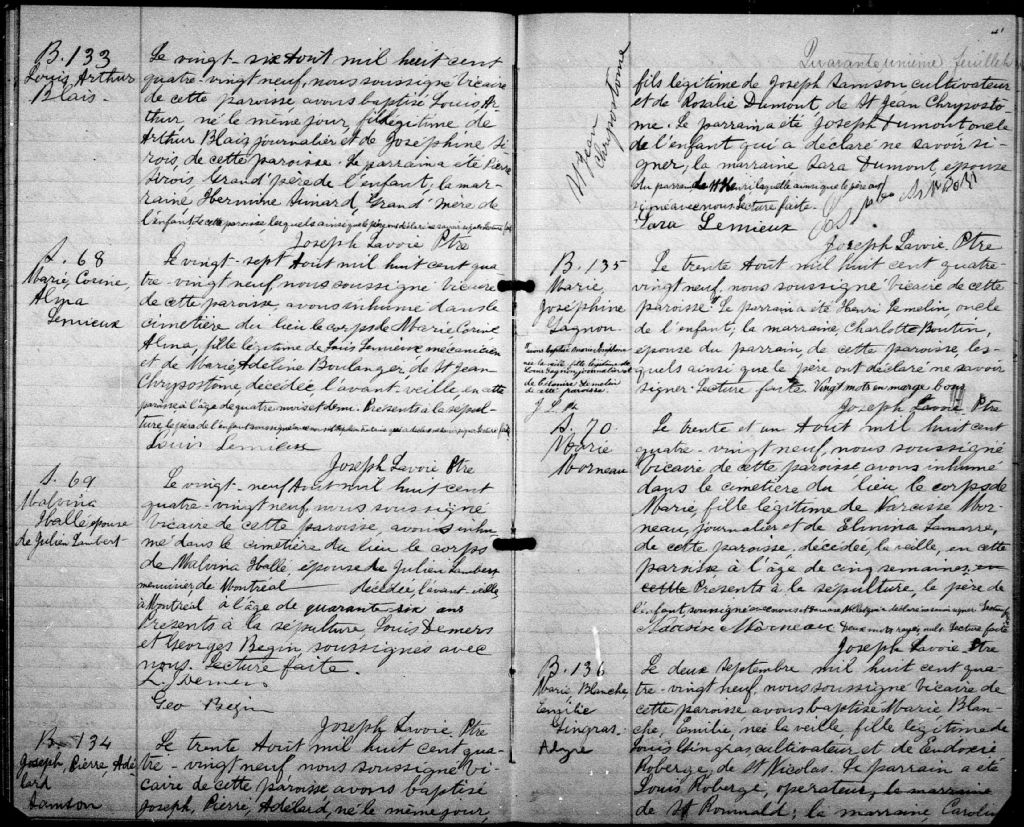 B. 133
Louis, Arthur
Blais.
Le vingt-six Aout mil huit cent
quatre-vingt neuf, nous soussigné Vicaire
de cette paroisse avons baptisé Louis Ar-
thur né le même jour, fils légitime de
Arthur Blais journalier et de Joséphine Si-
rois, de cette paroisse. Le parrain a été Pierre
Sirois, Grand' père de l'enfant; la mar-
raine Hermine Simard, Grand' mère de
l'enfant, de cette paroisse lesquels ainsi que le père ont déclaré ne savoir signer. Lecture faite
Joseph Lavoie Ptre
S. 68
Marie, Corine,
Alma
Lemieux
Le vingt-sept Aout mil huit cent qua-
tre-vingt neuf, nous soussigné Vicaire
de cette paroisse, avons inhumé dans le
cimetière du lieu le corps de Marie Corine
Alma, fille légitime de Louis Lemieux mécanicien
et de Marie, Adéline Boulanger de St Jean
Chrysostôme, décédée, l'avant veille, en cette
paroisse à l'âge de quatre mois et demi. Présents à la sépul-
ture, le père de l'enfant soussigné
Louis Lemieux
Joseph Lavoie Ptre
S. 69
Malvina
Hallé, épouse
de Julien Lambert
Le vingt-neuf Aout mil huit cent
quatre-vingt neuf, nous soussigné
Vicaire de cette paroisse, avons inhu-
mé dans le cimetière du lieu le corps
de Malvina Hallé, épouse de Julien Lambert
menuisier, de Montréal décédée, l'avant veille,
à Montréal à l'âge de quarante six ans
Présents à la sépulture, Louis Demers
et Georges Begin, soussignés avec
nous. Lecture faite.
L. J Demers
Geo Begin
Joseph Lavoie Ptre
B. 134
Joseph, Pierre, Adé-
lard
Samson
Le trente Aout mil huit cent qua-
tre-vingt neuf, nous soussigné Vi-
caire de cette paroisse avons baptisé
Joseph, Pierre, Adélard, né le même jour,
Quarante unième feuillet
St Jean
Chrysostome
fils légitime de Joseph Samson cultivateur
et de Rosalie Dumont de St Jean Chrysostô-
me. Le parrain a été Joseph Dumont oncle
de l'enfant qui a déclaré ne savoir si-
gner; la marraine Sara Dumont, épouse
du parrain de St Henri laquelle ainsi que le père ont
signé avec nous Lecture faite.
Sara Lemieux
Joseph Lavoie. Ptre
B. 135
Marie,
Joséphine
Gagnon
J. L. Pt
Le trente Aout mil huit cent quatre-
vingt neuf, nous soussigné Vicaire de cette
paroisse Le parrain a été Henri Lemelin, oncle
de l'enfant; la marraine, Charlotte Boutin,
épouse du parrain, de cette paroisse, les-
quels ainsi que le père ont déclaré ne savoir
signer. Lecture faite. Vingt mots en marge bons
Joseph Lavoie, Ptre
S. 70.
Marie
Morneau
Le trente et un Aout mil huit cent
quatre-vingt neuf, nous soussigné
Vicaire de cette paroisse avons inhumé
dans le cimetière du lieu le corps de
Marie, fille légitime de Narcisse Mor-
neau, journalier et de Elmina Lamarre,
de cette paroisse, décédée, la veille, en cette
paroisse à l'âge de cinq semaines, en
cette Présents à la sépulture, le père de
l'enfant soussigné avec nous
Narcisse Morneau Deux mots rayés nuls. Lecture faite
Joseph Lavoie Ptre
B. 136
Marie, Blanche,
Emilie
Gingras
Le deux Septembre mil huit cent qua-
tre-vingt neuf, nous soussigné Vicaire de
cette paroisse avons baptisé Marie Blan-
che, Emilie, née la veille, fille légitime de
Louis Gingras, cultivateur et de Eudoxie
Roberge, de St Nicolas. Le parrain a été
Louis Roberge, operateur, la marraine
de St Romuald; la marraine Caroline